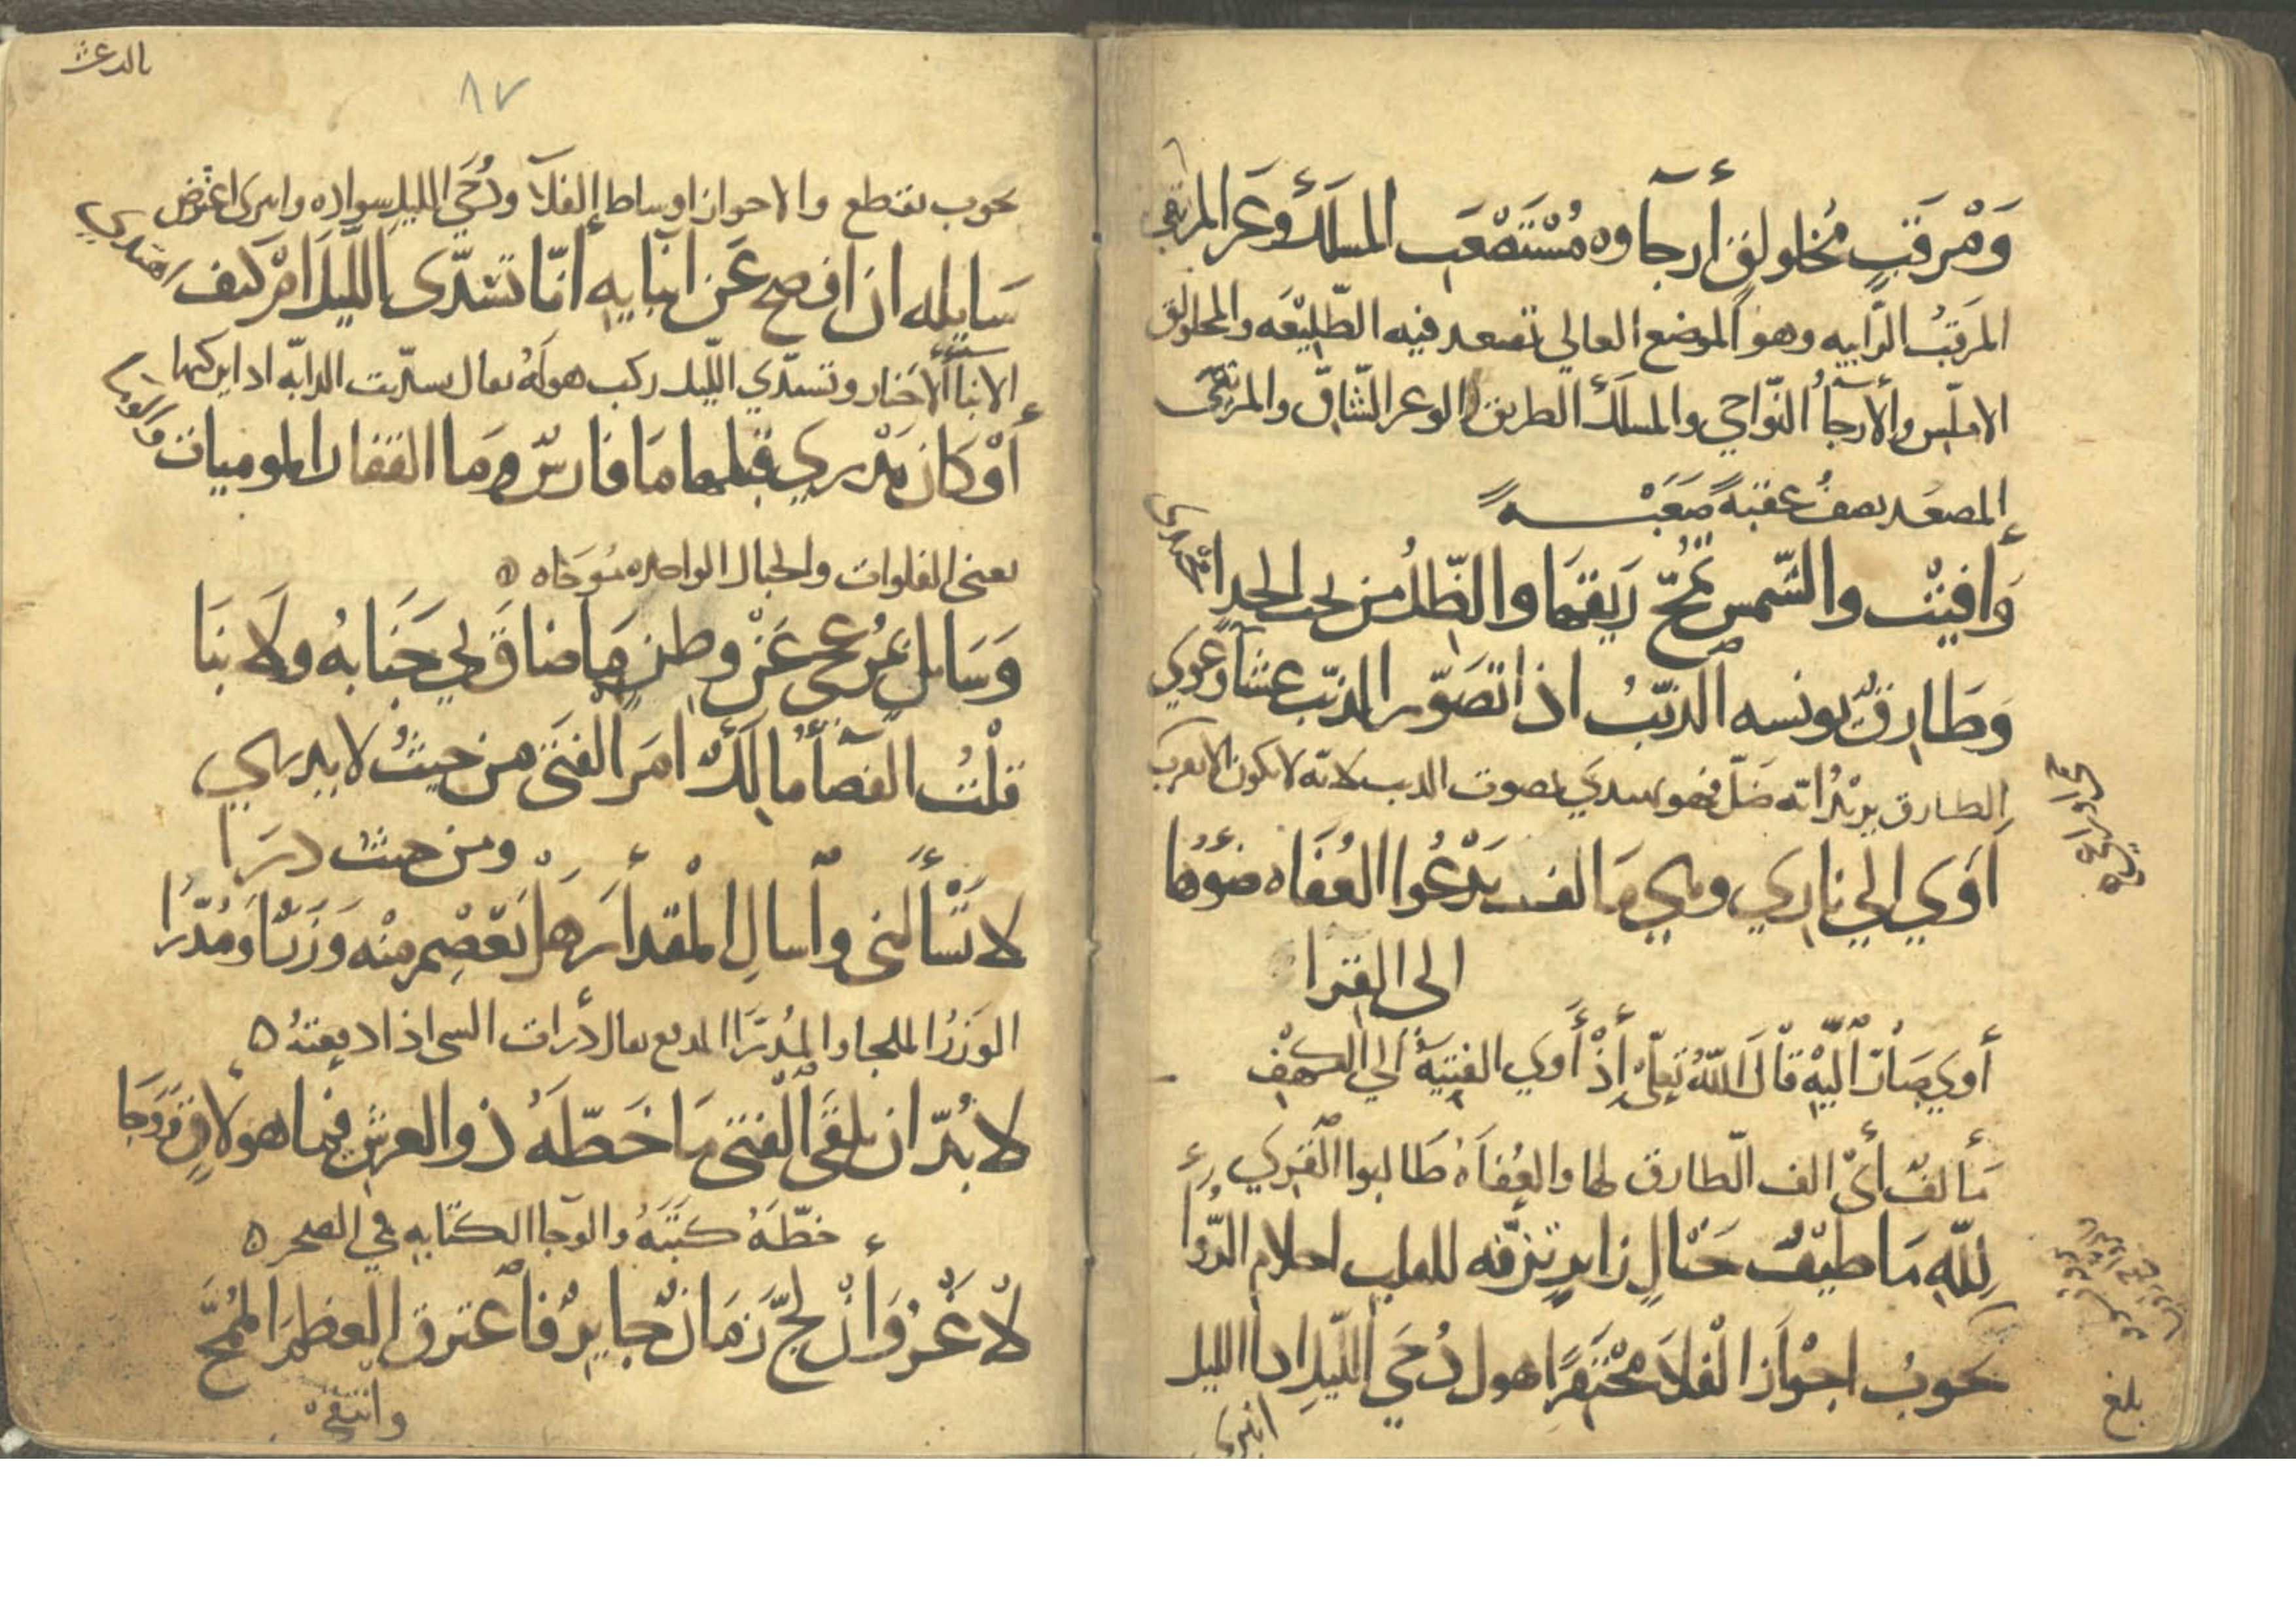 وَمَرْقَبٍ مُخْلَوْلِقٍ أَرجآوه مُسْتَصْعَبِ المسلَك وَعْرَ المرتقى
المَرقبُ الرّابيه وهو الموضع العالي تصعد فيه الطّليْعَه والمخلولق
الاملس والأرجآُ النّواحي والمسلَك الطريق والوعر الشّاق والمرتقى
المصعَد يصفُ عقبةً صَعْبَةً
وَافيتُ والشّمس تمُجّ رَيقهَا والظّلُ من تحت الحذآ
وَطَارقٌ يونسه الذّئبُ اذا تَضَوّر الذّئب عشآ وعوي
الطارق يريْدُ انه ضَلّ فهو يهتدي بصوت الذيب لانّه لا يكون الا بقرب
آوَي الي ناري وهي مَالف يَدْعُوا العُفَاه ضوْءُها
الي القِرا
أَوي صَارَ اليْهِ قاْلَ اللّهُ تعلى إِذْ أَوي الفتيَةُ الي الكهف
مَألفٌ أي الف الطارق لها والعُفَاهُ طَالبوا القِرى
لِلّهِ مَا طيْفُ خَيَالٍ زايرٍ تزفّه للقلب احلام الرُّوا
يجوبُ اجْوازَ الْفَلا محْتَقِرًا هول دُجَي اللّيلِ اذا الليل
انبرى
بلغ
بالدعث
٨٧
يجوب يقطع والاجواز اوساط الفلآ ودُجَي الليل سواده وانبرى اعترض
سَايِله ان افصح عَن انبايه انّا تسَدّى اللّيلَ امْ كيف اهتدي
الانبآ الاخبار وتسَدّي اللّيل ركب هولَهُ يقال تسدّيت الدابّه اذا ركبها
أَوْ كان يَدْري قبلها مَا فارسٌ وَمَا القفار الموميات والقرا
يعني الفلوات والجبال الواحده مَوْمَاه
وَسَايل بمُزْعجي عَنْ وطنٍ مَا ضاقَ لي جَنَابهُ ولا نبَا
قلْتُ القضآُ مالكٌ امرَ الفتَى من حيثُ لا يدري
ومن حيث دَرَا
لا تسْأَلني وآسالِ المْقدَارَ هَلْ يَعْصِم منْه وَزَرٌ اوَ مُدّرَا
الوَزَرُ الملجا والمُدّرَا المدفع يقال درأت الشي اذا دفعتهُ ٥
لا بُدّ ان يلقَى الفتى مَا خَطّهُ ذو العرشِ فيما هو لاقٍ وَوَحَا
خطّهُ كَتبَهُ والوَحَا الكتابه في الصخر ٥
لاْ غَرْوَ أنْ لجّ زَمَانٌ جايرٌ فآعترق العظمَ المُمِخّ
وانتقى